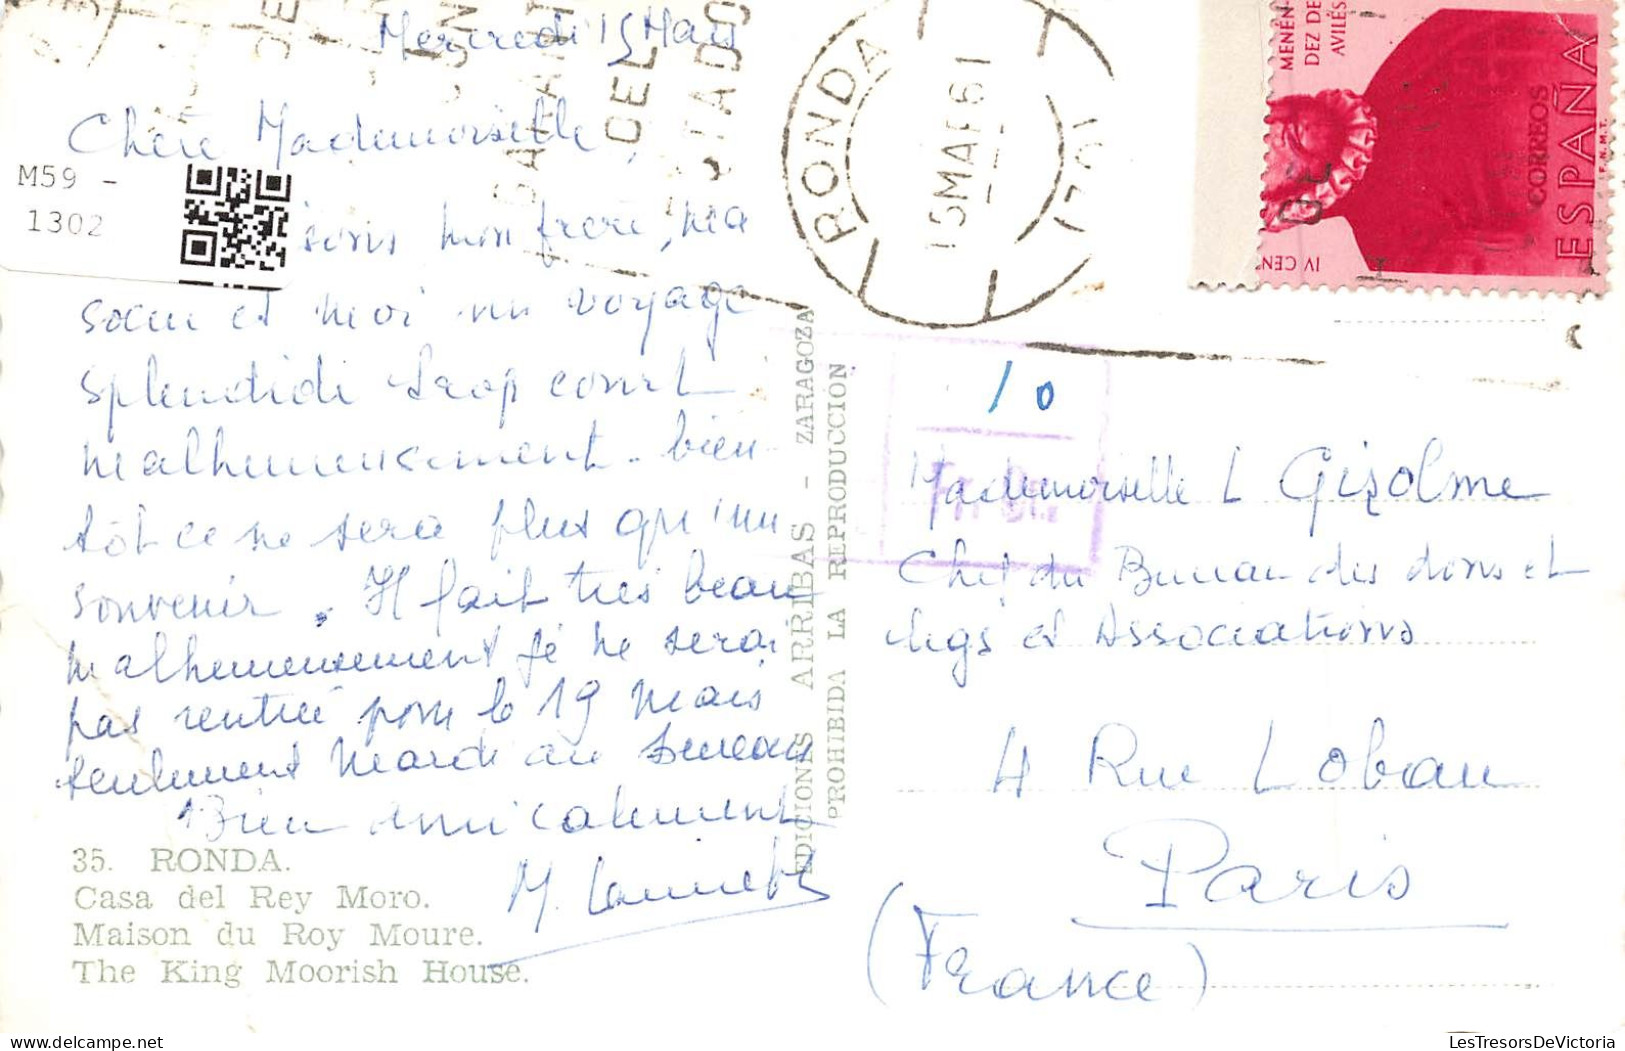 Mercredi 15 Mars
Chère Mademoiselle,
M59 -
1302
sons mon frère, ma
soeur et moi un voyage
splendide trop court
malheureusement. bien-
tôt ce ne sera plus qu'un
souvenir. Il fait très beau
malheureusement je ne serai
pas rentrée pour le 19 mais
seulement Mardi au bureau
Bien amicalement
35. RONDA.
Casa del Rey Moro.
Maison du Roy Moure.
The King Moorish House.
EDICIONES ARRIBAS - ZARAGOZA
PROHIBIDA LA REPRODUCCION
RONDA
15 MAR 61
DEL
MENÉN-
DEZ DE
AVILÉS
IV CEN
CORREOS
ESPAÑA
F.N.M.T.
10
Mademoiselle L Gizolme
Chef du Bureau des dons et
legs et Associations
4 Rue Lobau
Paris
(France)
delcampe.net
LesTresorsDeVictoria